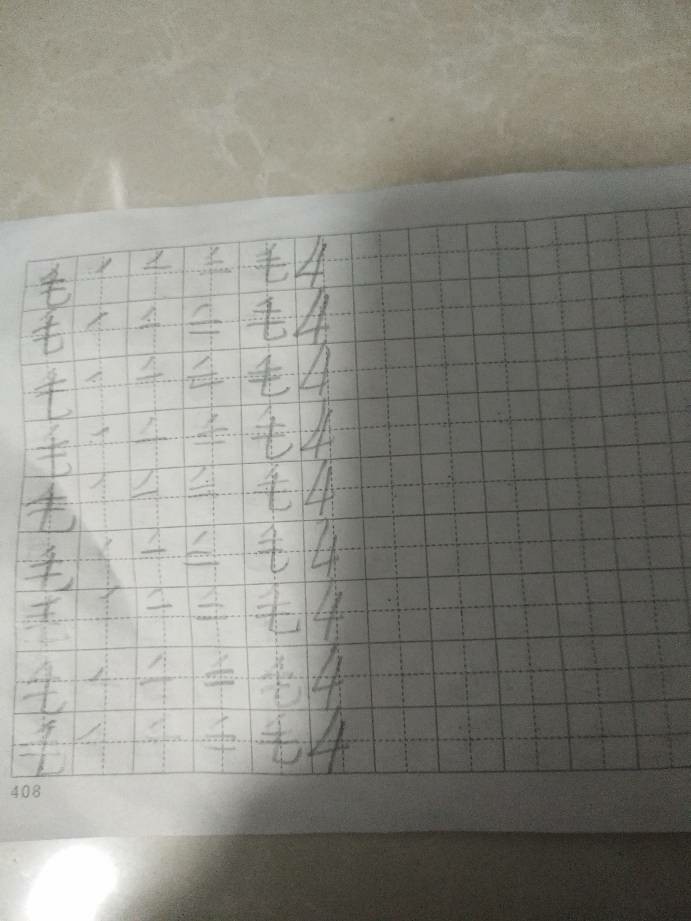 毛 ノ 二 三 毛 4
毛 ノ 二 三 毛 4
毛 ノ 二 三 毛 4
毛 ノ 二 三 毛 4
毛 ノ 二 三 毛 4
毛 ノ 二 三 毛 4
毛 ノ 二 三 毛 4
毛 ノ 二 三 毛 4
毛 ノ 二 三 毛 4
408